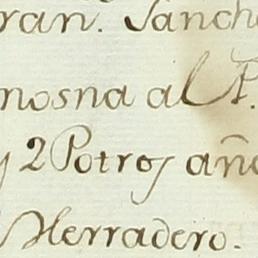 ran. Sanch
mosna al P.
y 2 Potros año
Herradero.